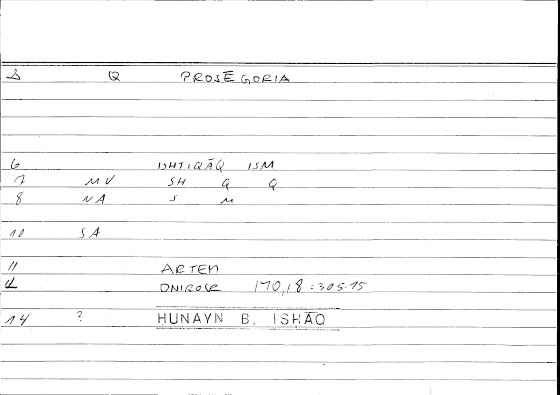 S Q PROSĒGORIA
6 ISHTIQĀQ ISM
7 MV SH Q Q
8 NA S M
10 SA
11 ARTEM
12 ONIROCR 170,18 : 305.15
14 ? HUNAYN B. ISHĀQ